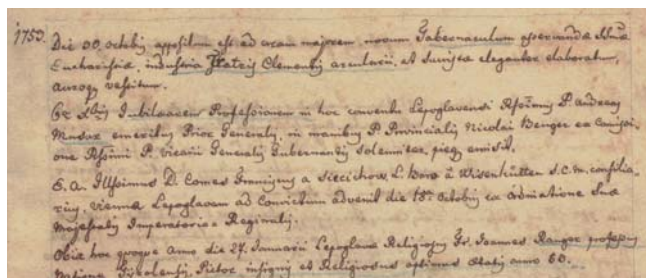 1753. Die 30. Octobris appositum est ad aram majorem novum Tabernaculum asservandae SSmae
Eucharistiae, industria Fratris Clementis arcularii, et Sunistae eleganter elaboratum,
auroque vestitum.
Xbris Jubilaeam Professionem in hoc conventu Lepoglavensi P. Andreas
Musar emeritus Prior Generalis, in manibus P. Provincialis Nicolai Benger ex Commissi-
one Rssimi P. Vicarii Generalis Gubernantis solemniter, pieque emisit.
E. a. Illssimus D. Comes Franciscus a L. Baro à S.C.M. consilia-
rius, Vienna Lepoglavam ad Convictum advenit die 18. Octobris ex ordinatione Suae
Majestatis Imperatoriae Reginalis.
Obiit hoc quoque anno die 27. Januarii Lepoglavae Religiosus Fr. Joannes Ranger professus
Natione Tyrolensis, Pictor insignis et Religiosus optimus aetatis anno 53.